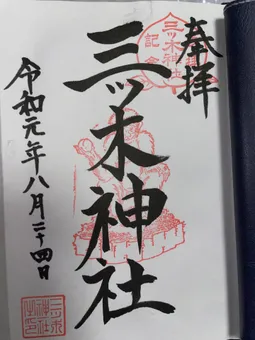 奉拝
三ッ木神社
令和元年八月二十四日
三ッ木神社
記念